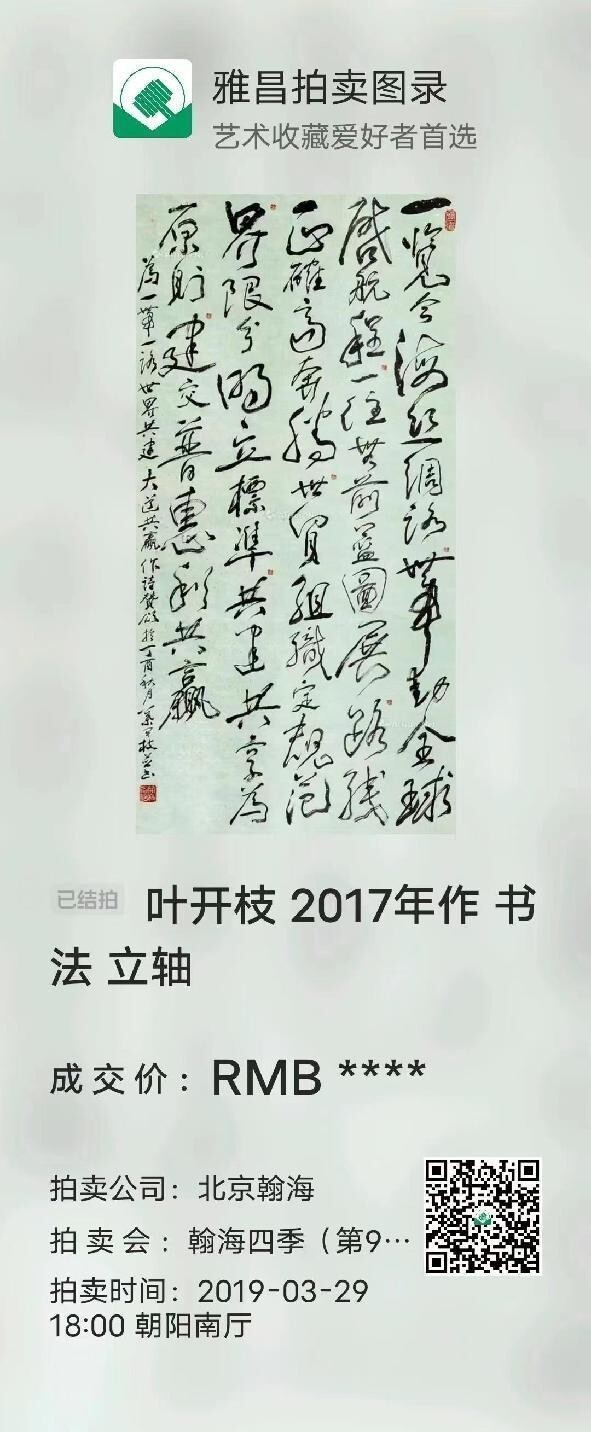 雅昌拍卖图录
艺术收藏爱好者首选
一览今海丝绸路带动全球
启航程一往无前蓝图展路线
正确高奔腾世贸组织定规范
界限分明立标准共建共享为
原则建交普惠利共赢
为一带一路世界共建大道共赢作诗赞颂于丁酉秋月叶开枝并书
已结拍
叶开枝 2017年作 书
法 立轴
成交价：RMB ****
拍卖公司：北京翰海
拍卖会：翰海四季（第9…
拍卖时间：2019-03-29
18:00 朝阳南厅